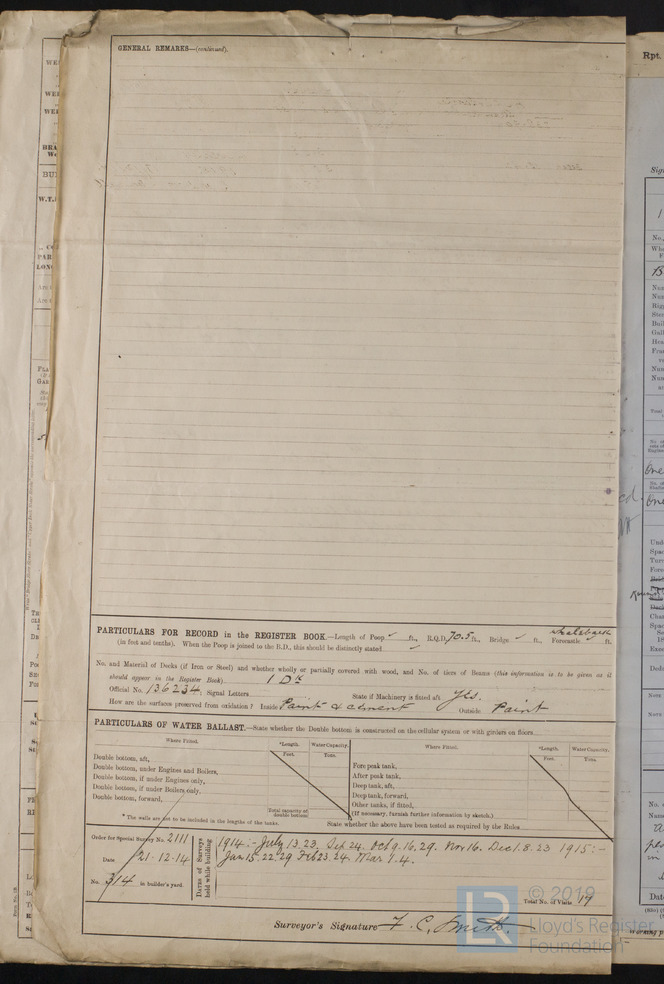 GENERAL REMARKS—(continued).
PARTICULARS FOR RECORD in the REGISTER BOOK.—Length of Poop ✓ ft., R.Q.D. 70.5 ft., Bridge ✓ ft., Forecastle Whaleback ft.
(in feet and tenths). When the Poop is joined to the B.D., this should be distinctly stated ✓
No. and Material of Decks (if Iron or Steel) and whether wholly or partially covered with wood, and No. of tiers of Beams (this information is to be given as it
should appear in the Register Book). 1 Dk
Official No. 136234. Signal Letters State if Machinery is fitted aft Yes.
How are the surfaces preserved from oxidation? Inside Paint & cement Outside Paint
PARTICULARS OF WATER BALLAST.—State whether the Double bottom is constructed on the cellular system or with girders on floors
Where Fitted. *Length. Water Capacity. Where Fitted. *Length. Water Capacity.
Feet. Tons. Feet. Tons.
Double bottom, aft, Fore peak tank,
Double bottom, under Engines and Boilers, After peak tank,
Double bottom, if under Engines only, Deep tank, aft,
Double bottom, if under Boilers only, Deep tank, forward,
Double bottom, forward, Other tanks, if fitted,
Total capacity of double bottom (If necessary, furnish further information by sketch.)
* The wells are not to be included in the lengths of the tanks. State whether the above have been tested as required by the Rules
Order for Special Survey No. 2111
Date 21-12-14
No. 314 in builder's yard.
Dates of Surveys held while building
1914:- July 13.23. Sep 24. Oct 9.16.29. Nov 16. Dec 1.8.23 1915:-
Jan 15.22.29 Feb 23.24. Mar 1.4.
Total No. of Visits 19
Surveyor's Signature F. C. Smith.
© 2019
Lloyd's Register
Foundation
LR
Rpt.